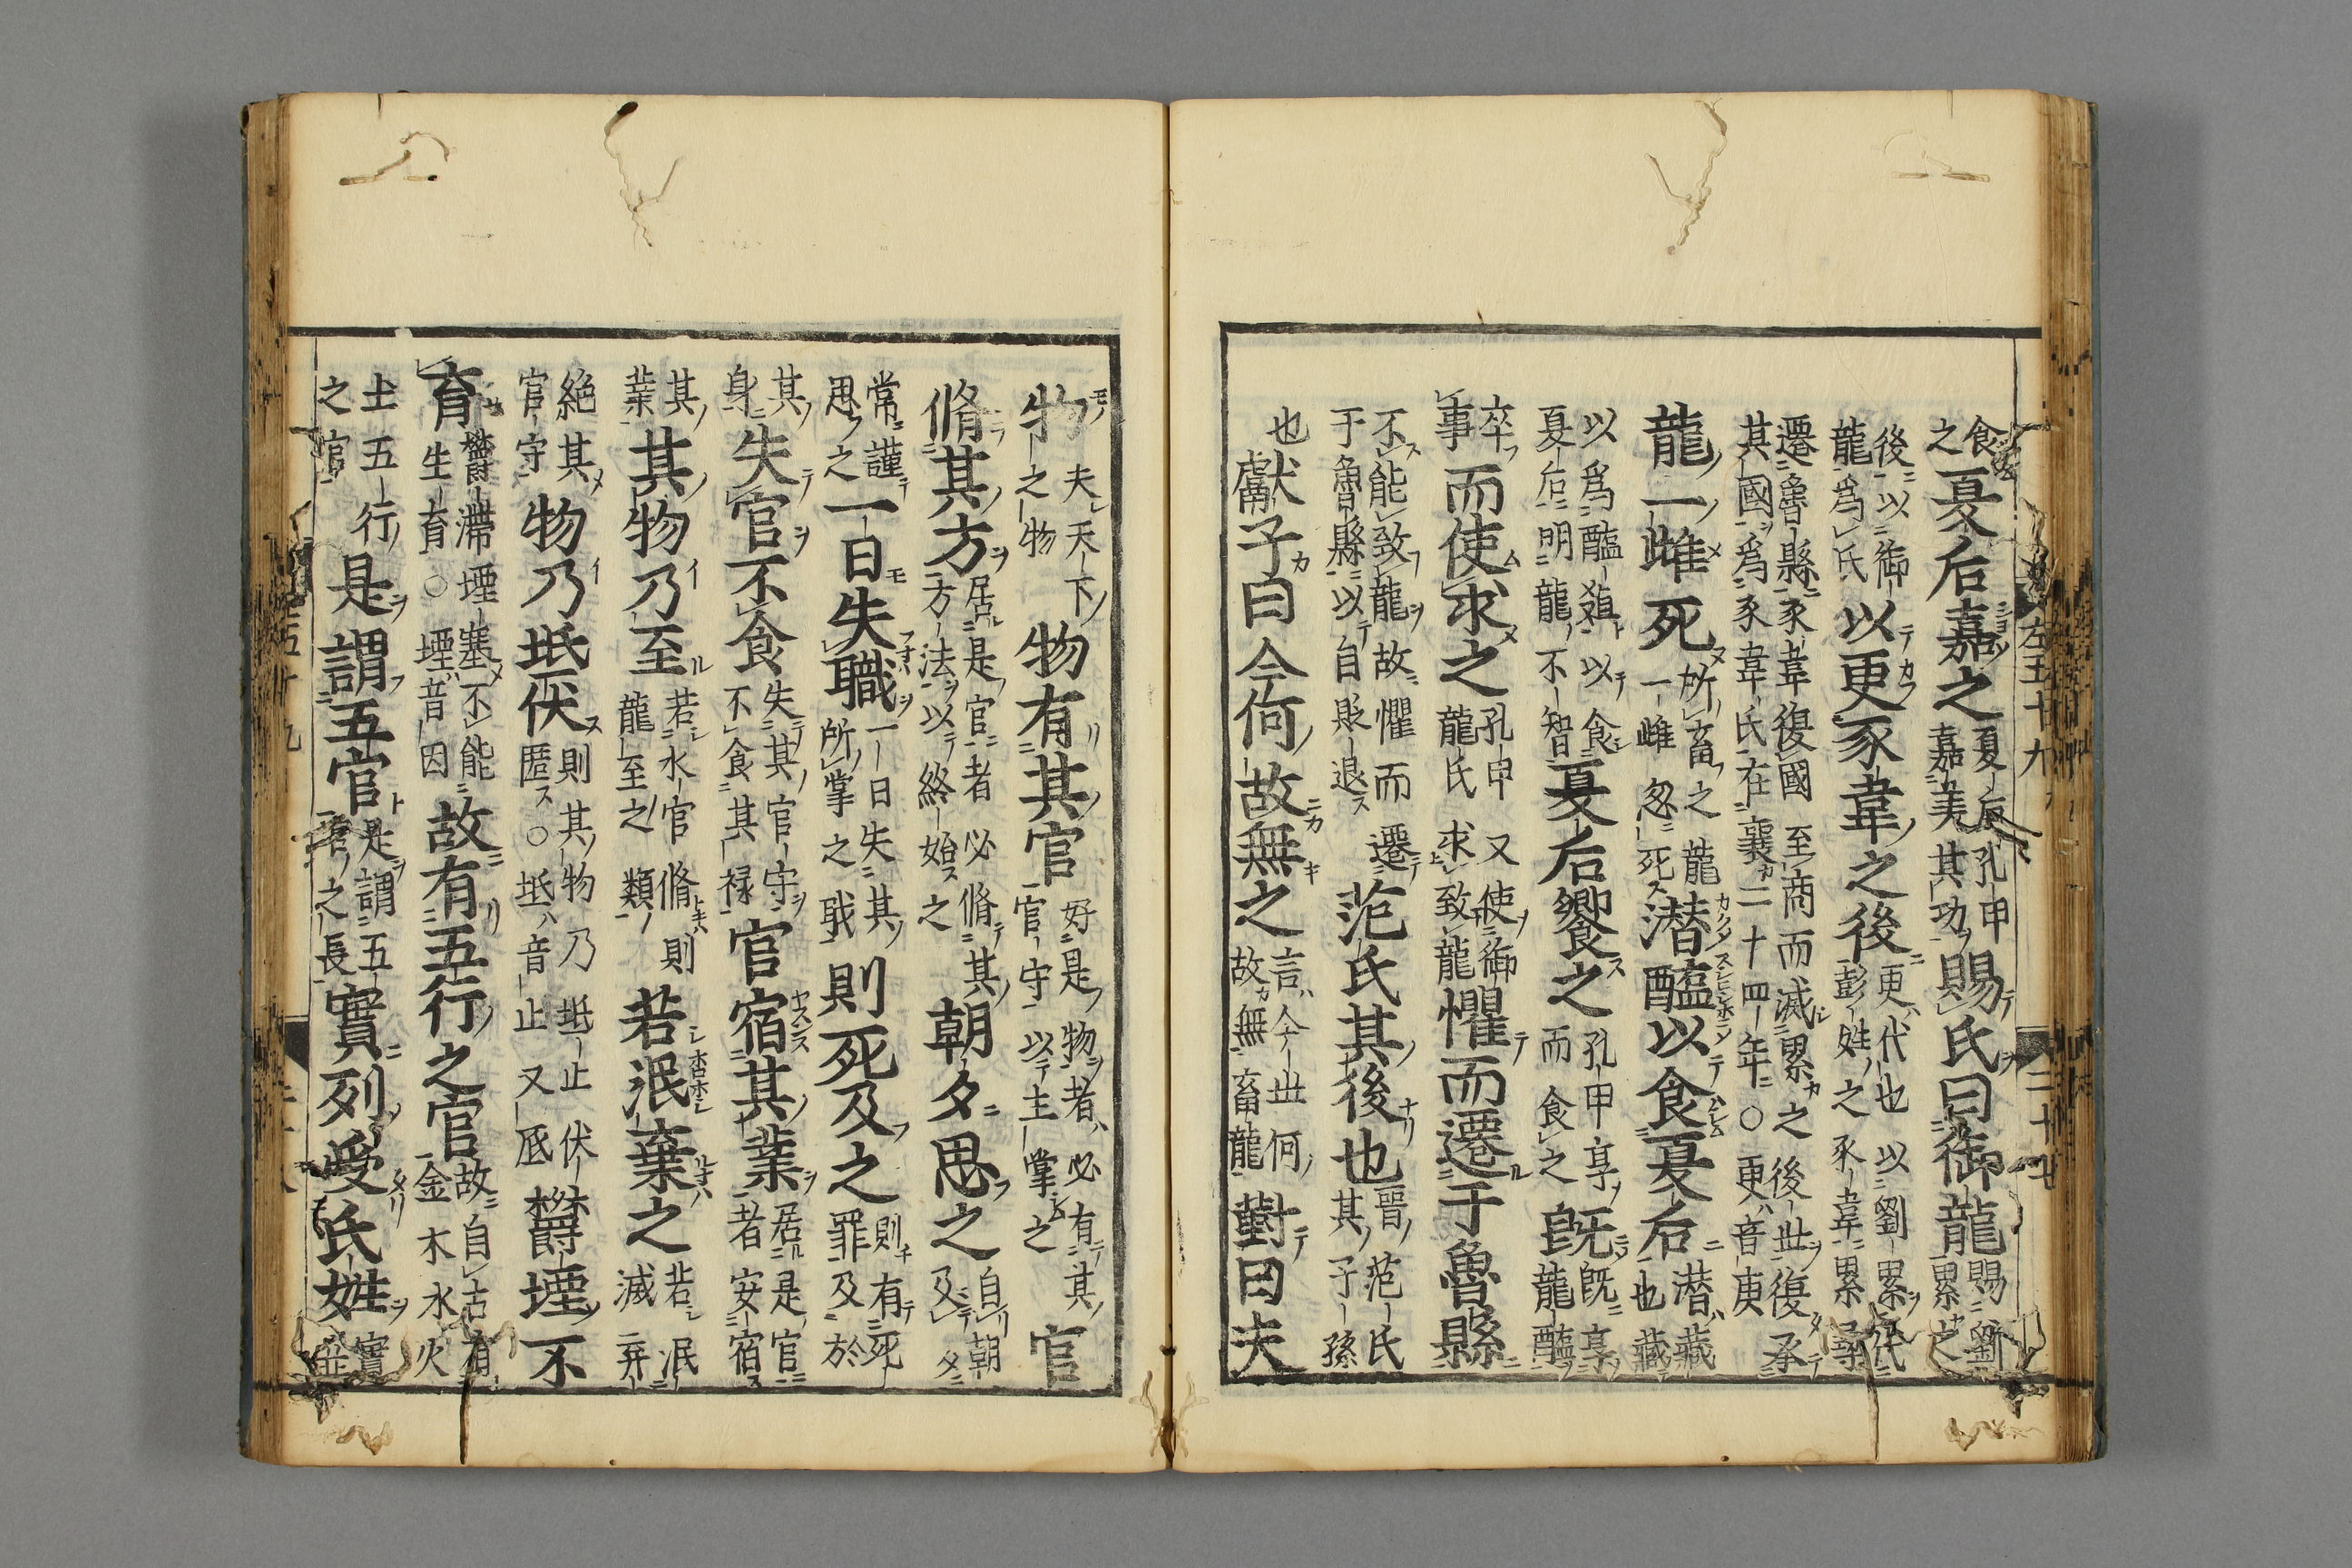 食之夏后嘉之夏后孔甲嘉美其功賜氏曰御龍賜劉累之
後以御龍爲氏以更豕韋之後更代也以劉累代彭姓之豕韋累尋
遷魯縣豕韋復國至商而滅累之後世復承其國爲豕韋氏在襄二十四年○更音庚
龍一雌死所畜之龍一雌忽死潜醢以食夏后潜藏也藏
以爲醢殖以食夏后明龍不智夏后饗之孔甲享而食之既既享龍醢
卒事而使求之孔甲又使御龍氏求致龍懼而遷于魯縣
不能致龍故懼而遷于魯縣以自貶退范氏其後也晉范氏其子孫
也獻子曰今何故無之言今世何故無畜龍對曰夫
左五十九
二十七
物夫天下之物物有其官好是物者必有其官守以主掌之官
脩其方居是官者必脩其方法以終始之朝夕思之自朝及夕
常謹思之一日失職一日失其所掌之職則死及之則有死罪及於
其身失官不食失其官守不食其禄官宿其業居是官者安宿
其業其物乃至若水官脩則龍至之類若泯棄之若泯滅弃
絶其官守物乃坻伏則其物乃坻止伏匿○坻音止又厎欝堙不
育欝滯堙塞不能生育○堙音因故有五行之官故自古有金木水火
土五行之官是謂五官是謂五官之長實列受氏姓實並